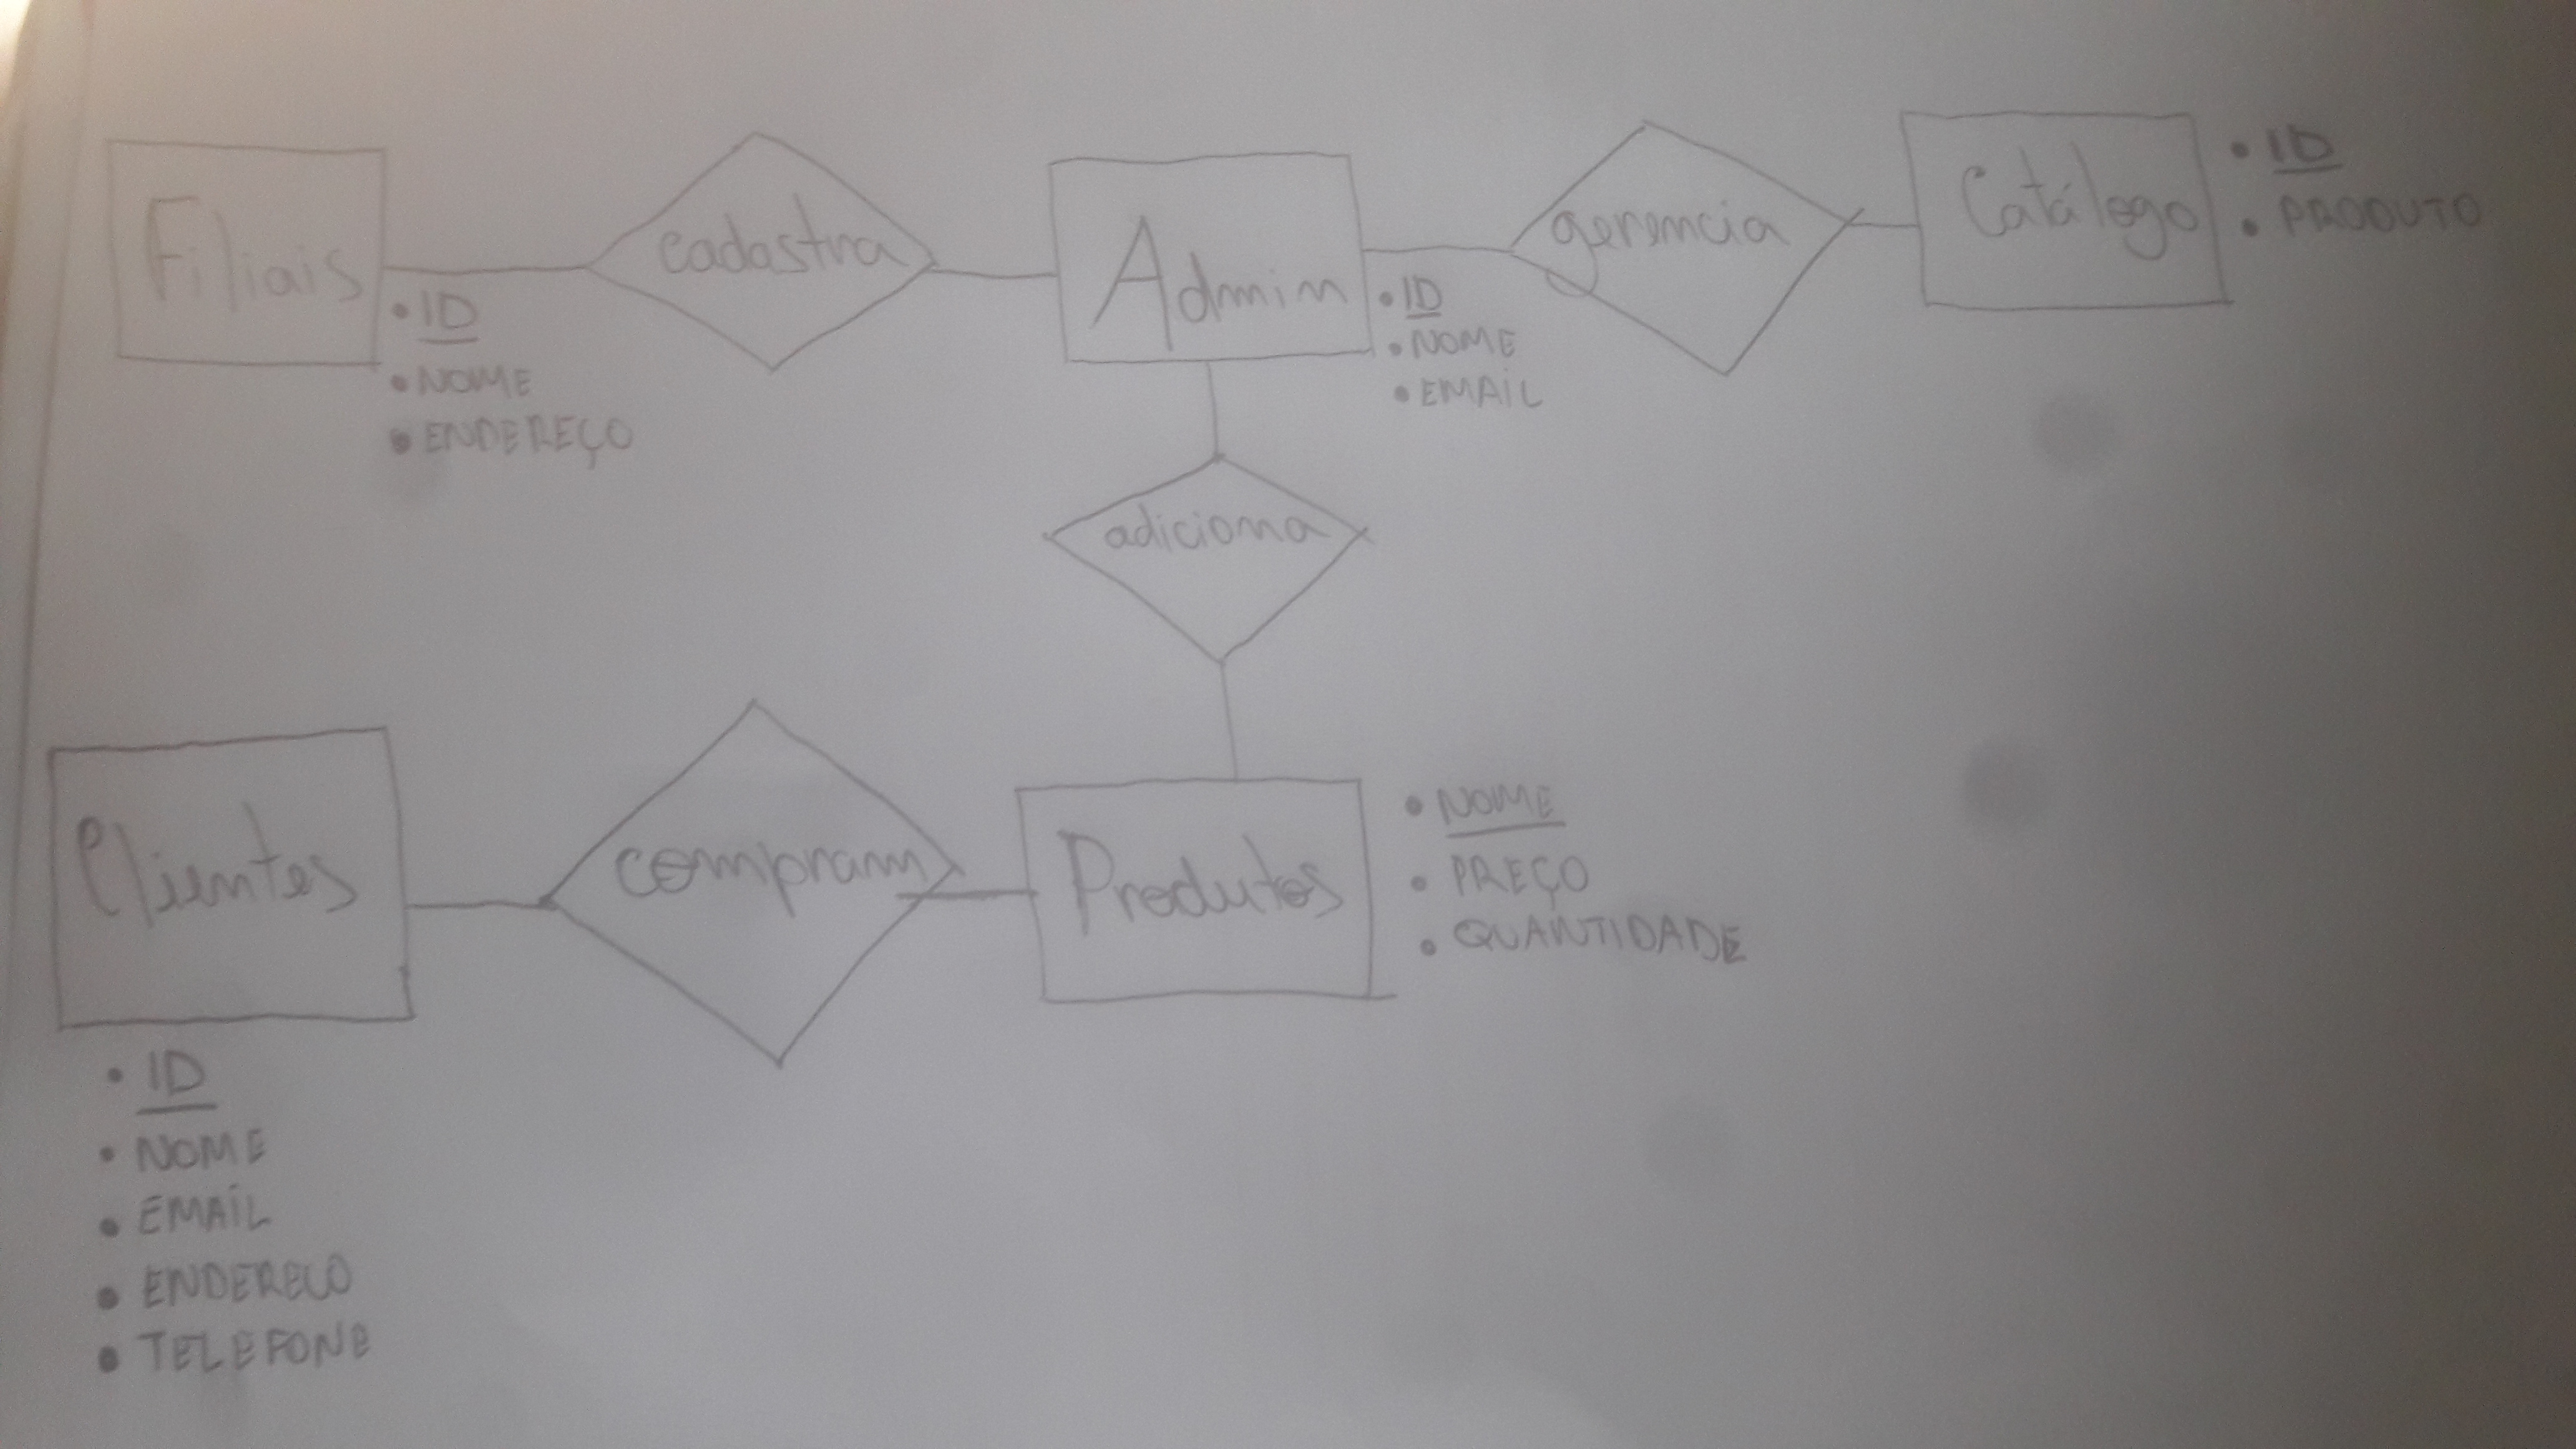 Filiais
• ID
• NOME
• ENDEREÇO
Cadastra
Admin
• ID
• NOME
• EMAIL
gerencia
Catálogo
• ID
• PRODUTO
adiciona
Clientes
• ID
• NOME
• EMAIL
• ENDEREÇO
• TELEFONE
Compram
Produtos
• NOME
• PREÇO
• QUANTIDADE